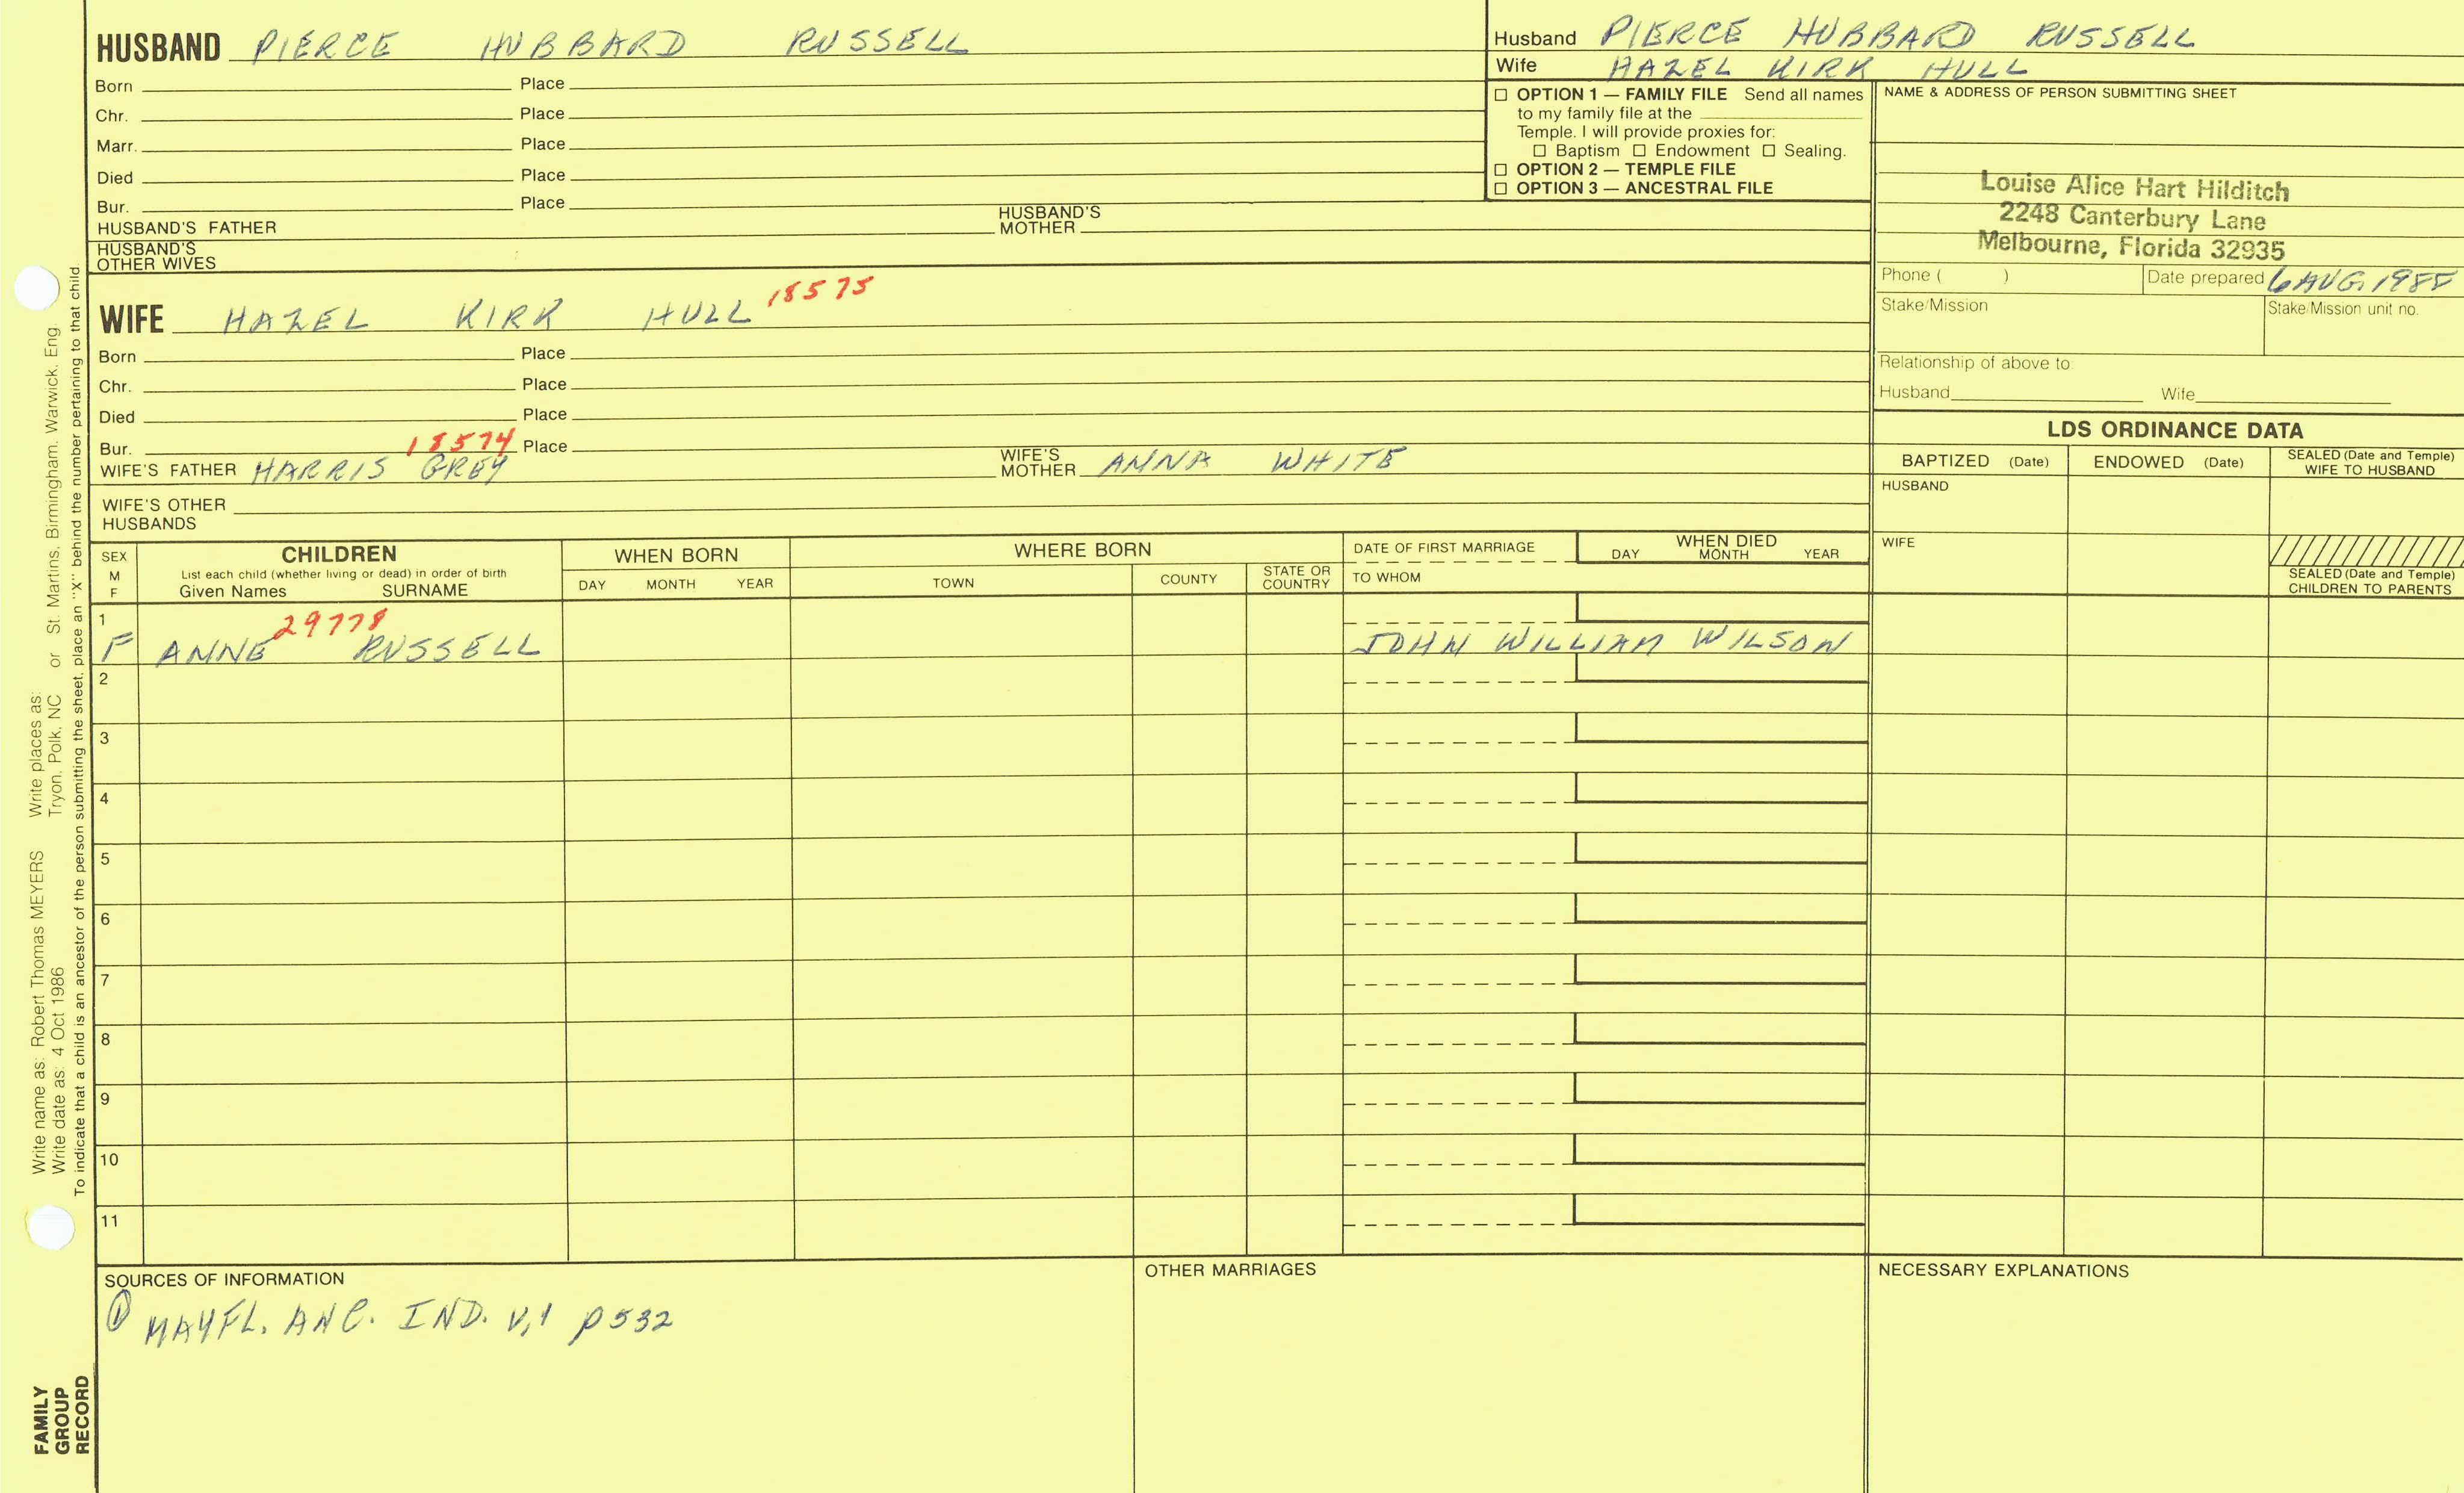 HUSBAND PIERCE HUBBARD RUSSELL
Born Place
Chr. Place
Marr. Place
Died Place
Bur. Place
HUSBAND'S FATHER HUSBAND'S MOTHER
HUSBAND'S OTHER WIVES
Husband PIERCE HUBBARD RUSSELL
Wife HAZEL KIRK HULL
☐ OPTION 1 — FAMILY FILE Send all names
to my family file at the
Temple. I will provide proxies for:
☐ Baptism ☐ Endowment ☐ Sealing.
☐ OPTION 2 — TEMPLE FILE
☐ OPTION 3 — ANCESTRAL FILE
NAME & ADDRESS OF PERSON SUBMITTING SHEET
Louise Alice Hart Hilditch
2248 Canterbury Lane
Melbourne, Florida 32935
Phone ( ) Date prepared 6 AUG. 1988
Stake/Mission Stake/Mission unit no.
Relationship of above to:
Husband Wife
WIFE HAZEL KIRK HULL 18575
Born Place
Chr. Place
Died Place
Bur. 18574 Place
WIFE'S FATHER HARRIS GREY WIFE'S MOTHER ANNA WHITE
WIFE'S OTHER HUSBANDS
LDS ORDINANCE DATA
BAPTIZED (Date) ENDOWED (Date) SEALED (Date and Temple) WIFE TO HUSBAND
HUSBAND
WIFE
SEALED (Date and Temple) CHILDREN TO PARENTS
SEX M F
CHILDREN
List each child (whether living or dead) in order of birth
Given Names SURNAME
WHEN BORN
DAY MONTH YEAR
WHERE BORN
TOWN COUNTY STATE OR COUNTRY
DATE OF FIRST MARRIAGE
TO WHOM
WHEN DIED
DAY MONTH YEAR
1 29778
F ANNE RUSSELL JOHN WILLIAM WILSON
2
3
4
5
6
7
8
9
10
11
SOURCES OF INFORMATION
① MAYFL. ANC. IND. V,1 p532
OTHER MARRIAGES
NECESSARY EXPLANATIONS
Write name as: Robert Thomas MEYERS Write places as:
Write date as: 4 Oct 1986 Tryon, Polk, NC or St. Martins, Birmingham, Warwick, Eng.
To indicate that a child is an ancestor of the person submitting the sheet, place an "X" behind the number pertaining to that child.
FAMILY
GROUP
RECORD